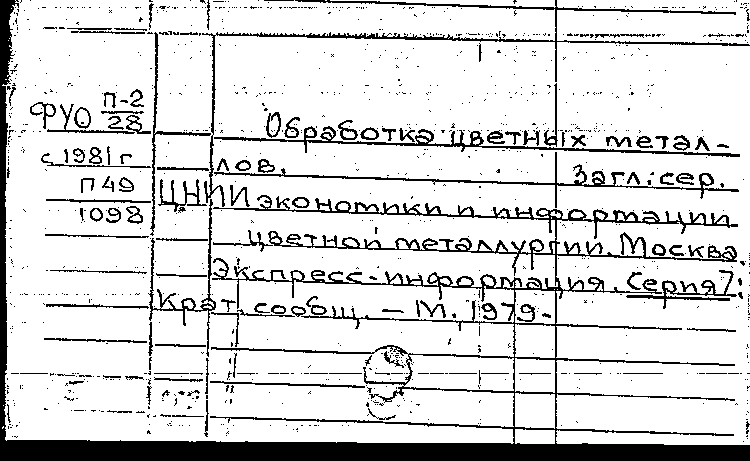 ФУО П-2
28
Обработка цветных метал-
с 1981 г
лов.
Загл. сер.
П 49
ЦНИИ экономики и информации
1098
цветной металлургии. Москва.
Экспресс-информация. Серия 7:
Крат. сообщ. — М., 1979-